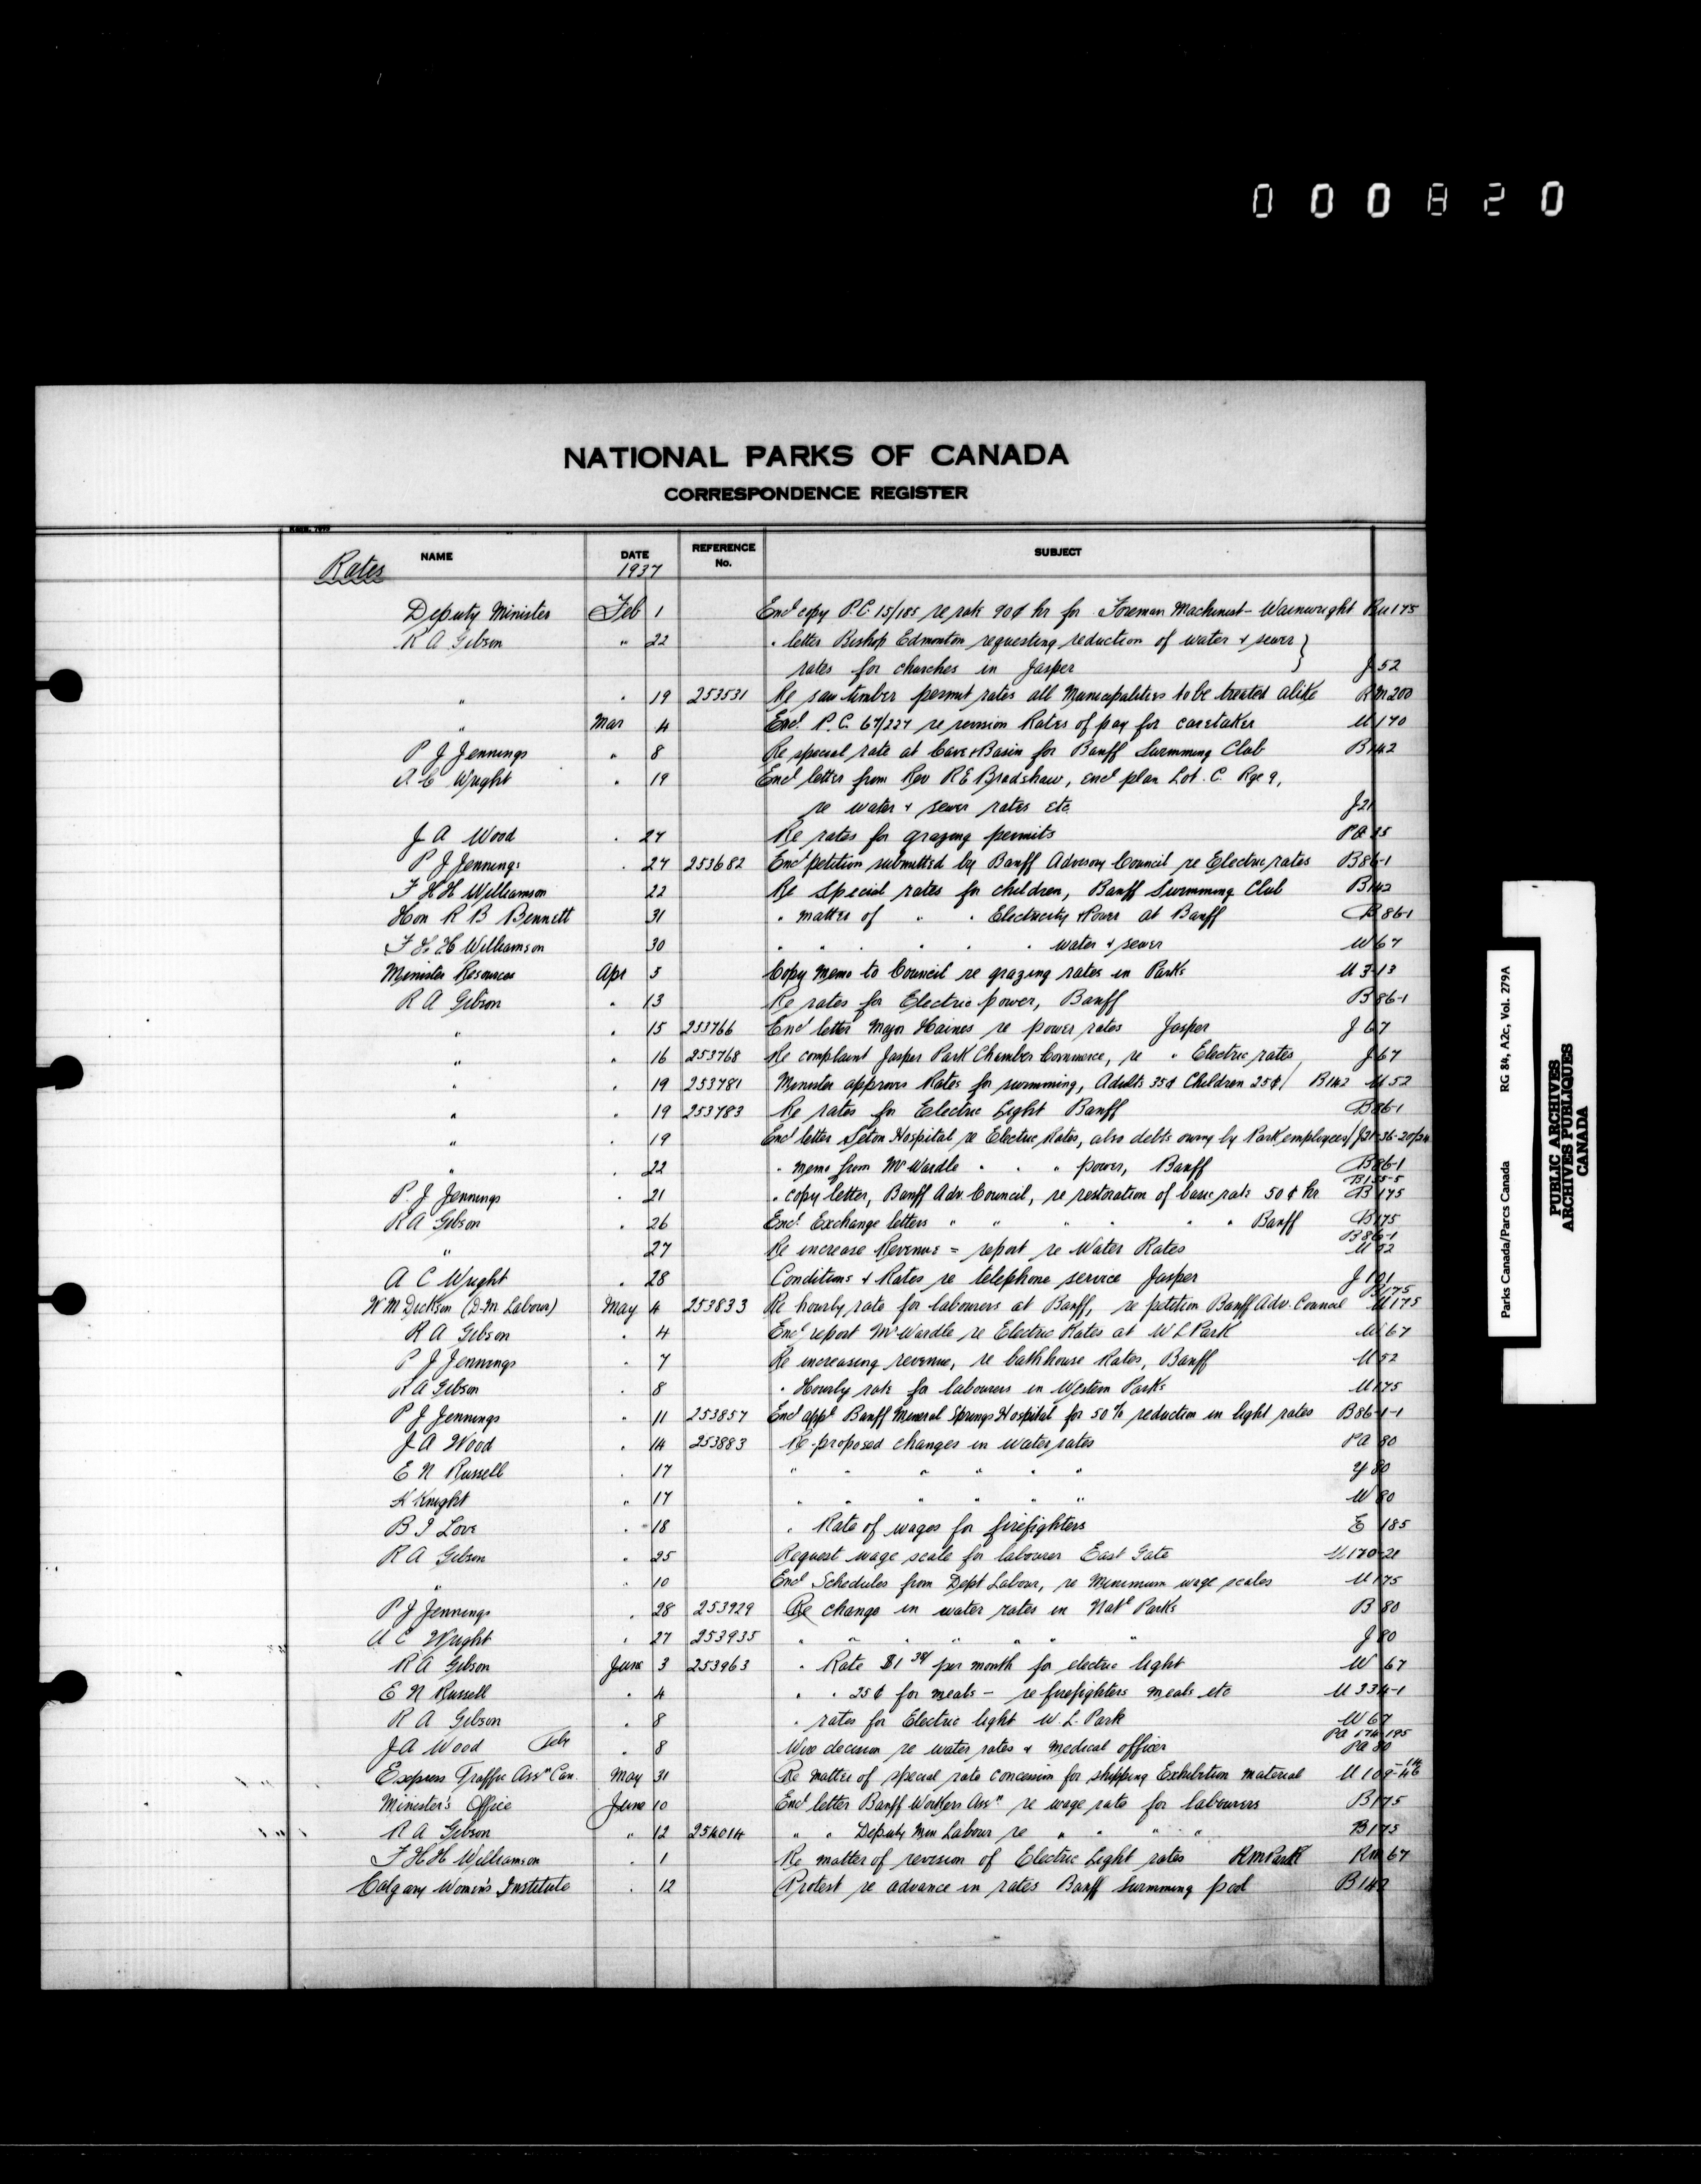 000820
NATIONAL PARKS OF CANADA
CORRESPONDENCE REGISTER
NAME DATE REFERENCE No. SUBJECT
Rates 1937
Deputy Minister Feb 1 Encl copy P.C. 15/185 re rate 90¢ hr for Foreman Machinist - Wainwright Bu175
R A Gibson " 22 " letter Bishop Edmonton requesting reduction of water & sewer }
rates for churches in Jasper J 52
" " 19 253531 Re saw timber permit rates all Municipalities to be treated alike RM200
" Mar 4 Encl. P.C. 67/227 re revision Rates of pay for caretaker U170
P J Jennings " 8 Re special rate at Cave & Basin for Banff Swimming Club B142
A C Wright " 19 Encl letter from Rev R E Bradshaw, encl plan Lot. C. Rge 9,
re water & sewer rates etc J21
J A Wood " 24 Re rates for grazing permits PA 25
P J Jennings " 24 253682 Encl petition submitted by Banff Advisory Council re Electric rates B86-1
F H H Williamson 22 Re Special rates for children, Banff Swimming Club B142
Hon R B Bennett 31 " matter of " " Electricity & Power at Banff B86-1
F H H Williamson 30 " " " " " " water & sewer W67
Minister Resources Apr 5 Copy Memo to Council re grazing rates in Parks U3-13
R A Gibson " 13 Re rates for Electric power, Banff B86-1
" " 15 253766 Encl letter Major Haines re power rates Jasper J 67
" " 16 253768 Re complaint Jasper Park Chamber Commerce, re " Electric rates, J 67
" " 19 253781 Minister approves Rates for swimming, Adults 35¢ Children 25¢/ B142 U52
" " 19 253783 Re rates for Electric Light Banff B86-1
" " 19 Encl letter Seton Hospital re Electric Rates, also debts owing by Park employees/
" " 22 " memo from Mr Wardle " " " power, Banff B86-1
B155-5
P. J Jennings " 21 " copy letter, Banff Adv. Council, re restoration of basic rate 50¢ hr B175
R A Gibson " 26 Encl. Exchange letters " " " " " Banff B175
B86-1
" 27 Re increase Revenue = report re Water Rates U52
A C Wright " 28 Conditions & Rates re telephone service Jasper J 101
B175
W M Dickson (D.M. Labour) May 4 253833 Re hourly rate for labourers at Banff, re petition Banff Adv. Council U175
R A Gibson " 4 Encl report Mr Wardle re Electric Rates at W L Park W67
P J Jennings " 7 Re increasing revenue, re bathhouse Rates, Banff U52
R A Gibson " 8 " Hourly rate for labourers in Western Parks U175
P J Jennings " 11 253857 Encl appl Banff Mineral Springs Hospital for 50% reduction in light rates B86-1-1
J A Wood " 14 253883 Re proposed changes in water rates PA 80
E N Russell " 17 " " " " " " Y 80
H Knight " 17 " " " " " " W 80
B I Love " 18 " Rate of wages for firefighters E 185
R A Gibson " 25 Request wage scale for labourer East Gate U170-21
" " 10 Encl Schedules from Dept Labour, re Minimum wage scales U175
P J Jennings " 28 253929 Re change in water rates in Natl Parks B 80
A C Wright " 27 253935 " " " " " " " J 80
R A Gibson June 3 253963 " Rate $1 39/ per month for electric light W 67
E N Russell " 4 " " 25¢ for meals - re firefighters meals etc U334-1
R A Gibson " 8 " rates for Electric light W.L. Park W67
PA 174-195
J A Wood Tele " 8 Wire decision re water rates & medical officer PA 80
Express Traffic Assn Can. May 31 Re matter of special rate concession for shipping Exhibition material U109-46-14
Minister's Office June 10 Encl letter Banff Workers Assn re wage rate for labourers B175
R A Gibson " 12 254014 " " Deputy Min Labour re " " " " B175
F H H Williamson " 1 Re matter of revision of Electric Light rates RM Park RM 67
Calgary Women's Institute " 12 Protest re advance in rates Banff Swimming pool B142
Parks Canada/Parcs Canada RG 84, A2c, Vol. 279A
PUBLIC ARCHIVES
ARCHIVES PUBLIQUES
CANADA